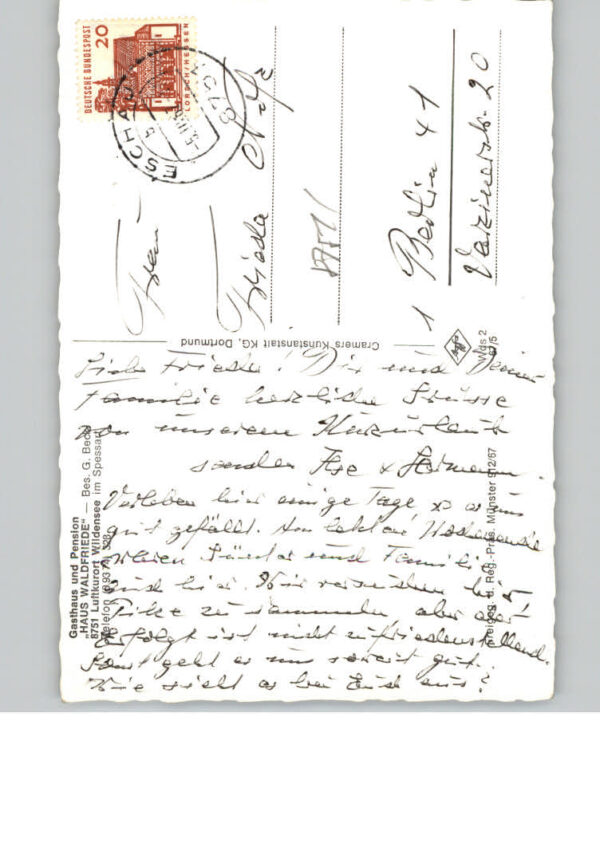 Gasthaus und Pension
„HAUS WALDFRIEDE" — Bes. G. Beck
8751 Luftkurort Wildensee im Spessart
Telefon (0 93 74) 328
Cramers Kunstanstalt KG, Dortmund
Wds 2
Freigeg. d. Reg.-Präs. Münster 912/67
DEUTSCHE BUNDESPOST
20
LORSCH/HESSEN
ESCHAU
8751
Frau
Frieda
8751
1 Berlin 41
Varzinerstr. 20
Liebe Frieda! Dir und Deiner
Familie herzliche Grüsse
von unserem Kurzurlaub
senden Ilse & Hermann.
Verleben hier einige Tage, wo es uns
gut gefällt. Am letzten Wochenende
waren Günter und Familie
auch hier. Wir versuchen hier
Pilze zu sammeln, aber der
Erfolg ist nicht zufriedenstellend.
Sonst geht es uns soweit gut.
Wie sieht es bei Euch aus?